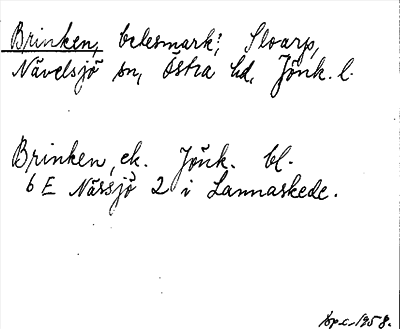 Brinken, betesmark; Sloarp,
Nävelsjö sn, Östra hd, Jönk. l.
Brinken, ek. Jönk. bl.
6 E Nässjö 2 i Lannaskede.
1958.